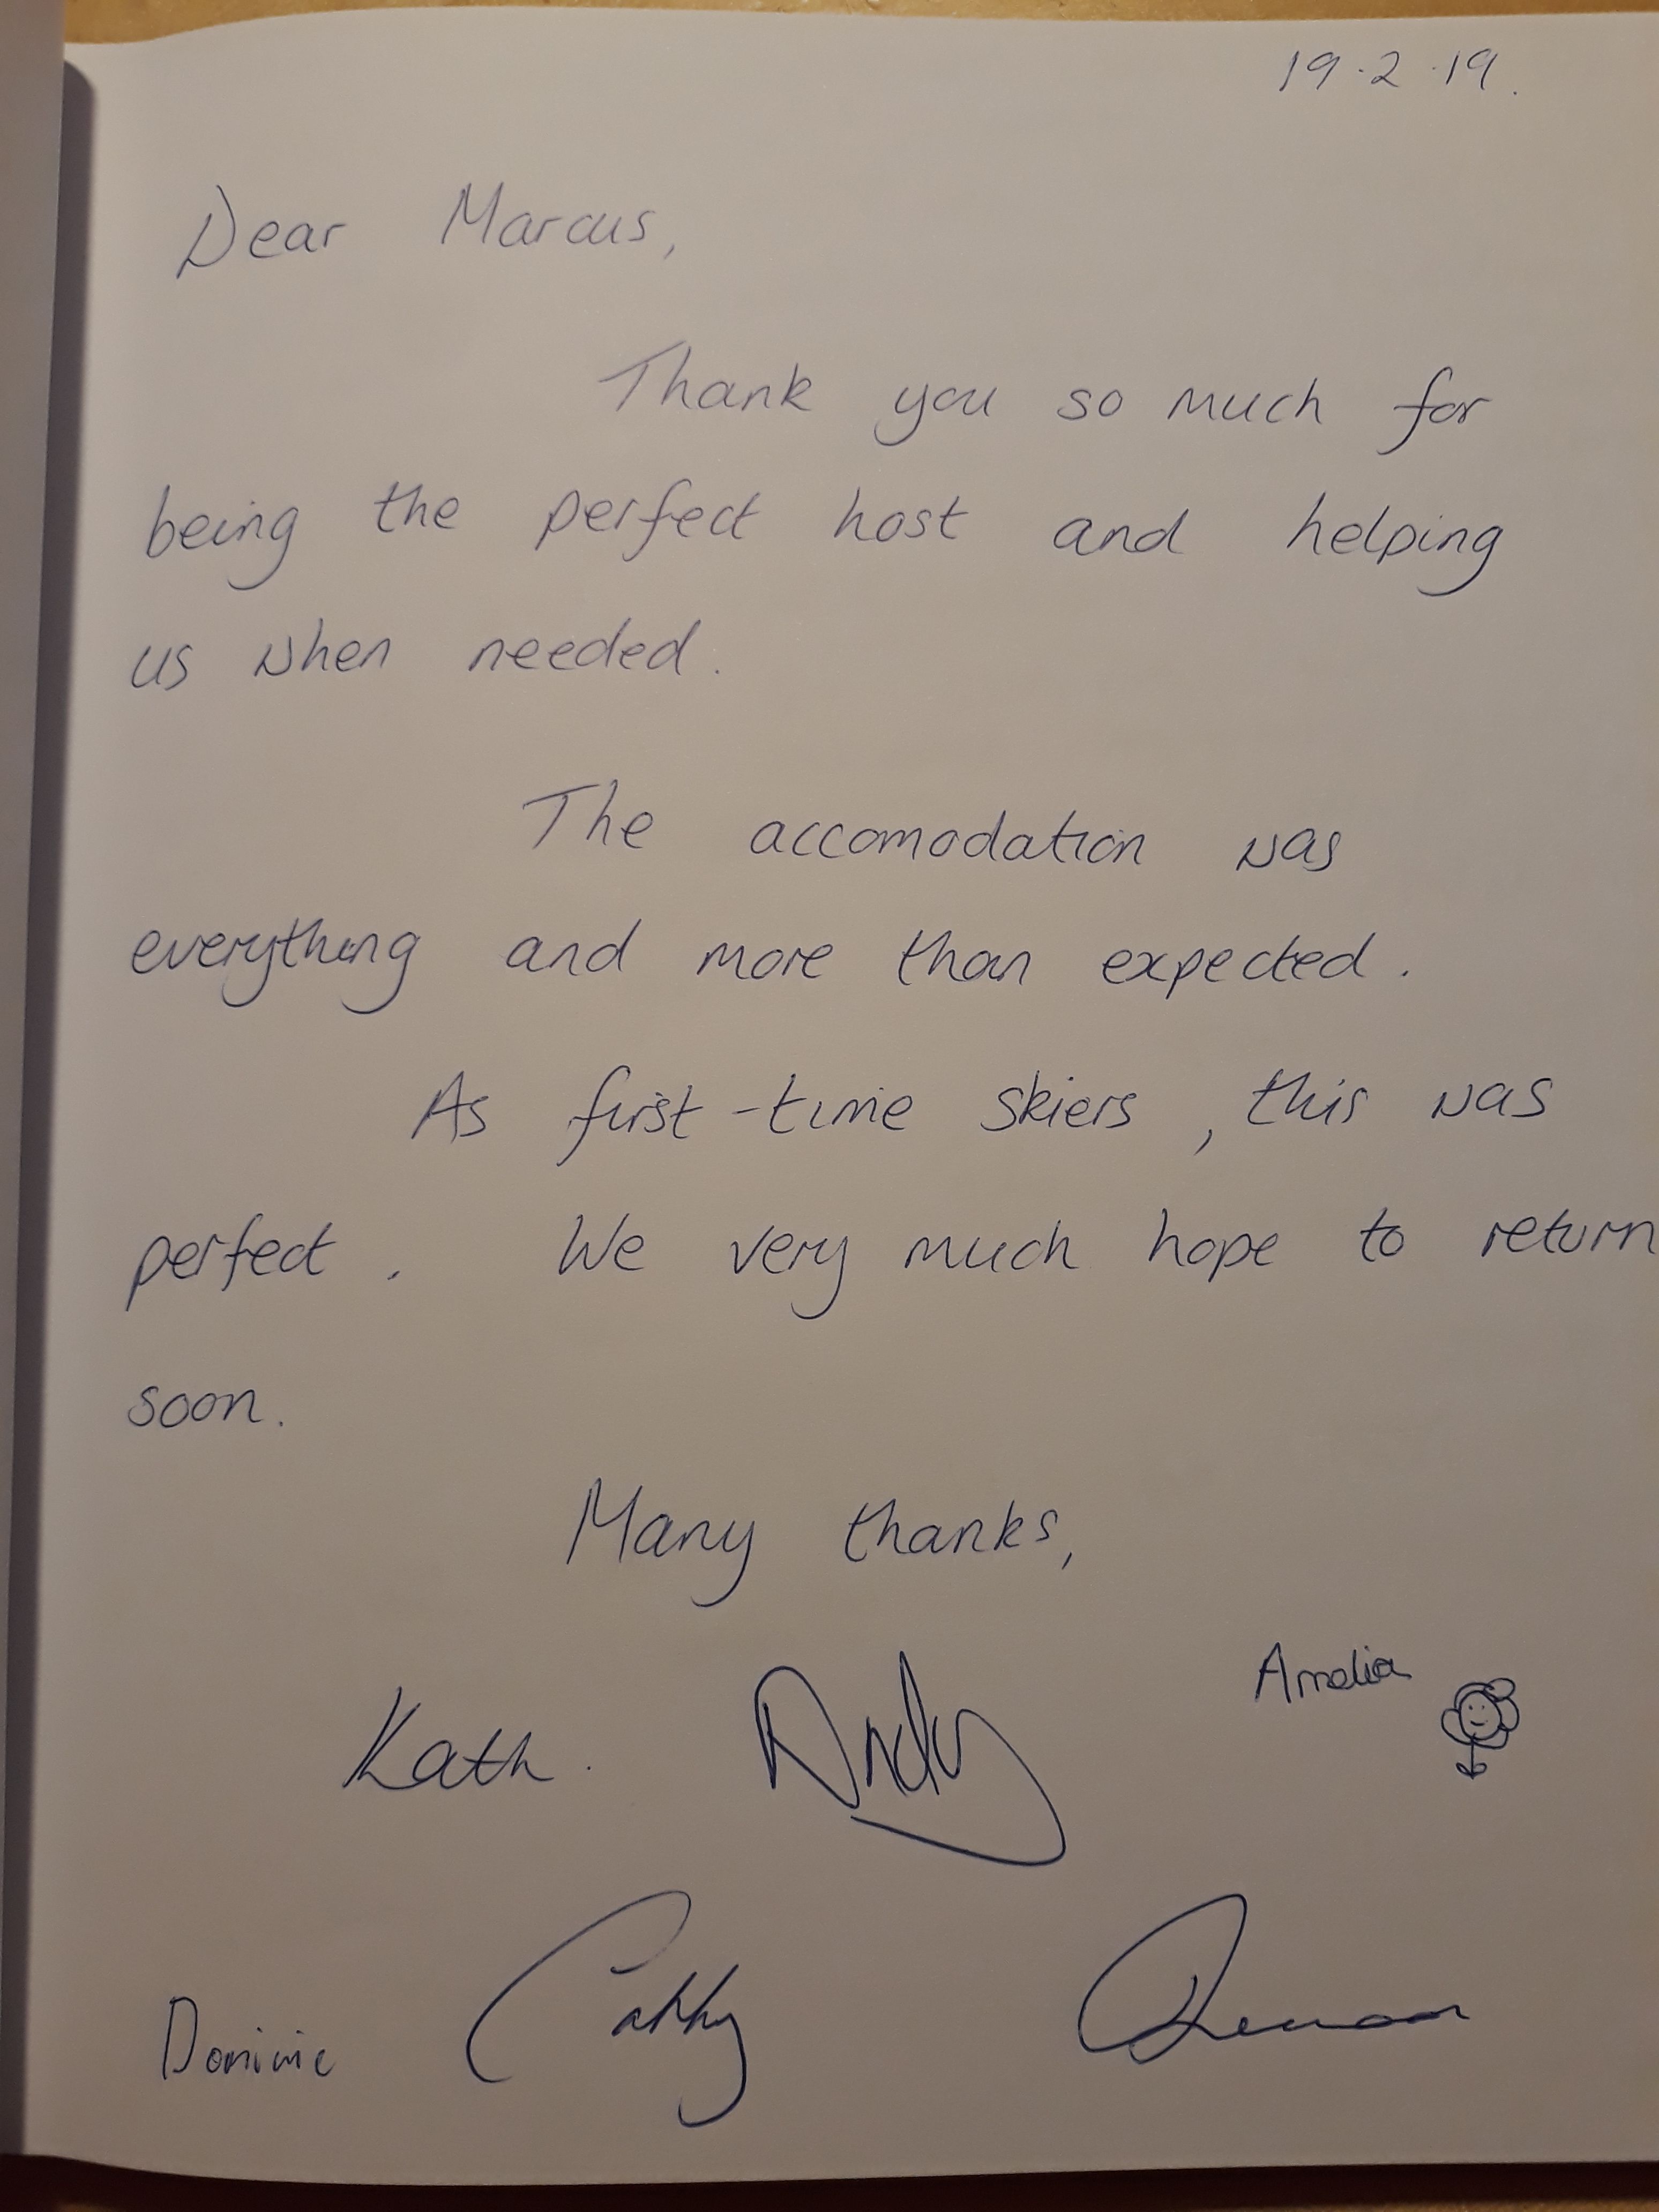 19.2.19.
Dear Marcus,
Thank you so much for
being the perfect host and helping
us when needed.
The accomodation was
everything and more than expected.
As first-time skiers, this was
perfect. We very much hope to return
soon.
Many thanks,
Kath. Andy Amelia
Dominic Cathy